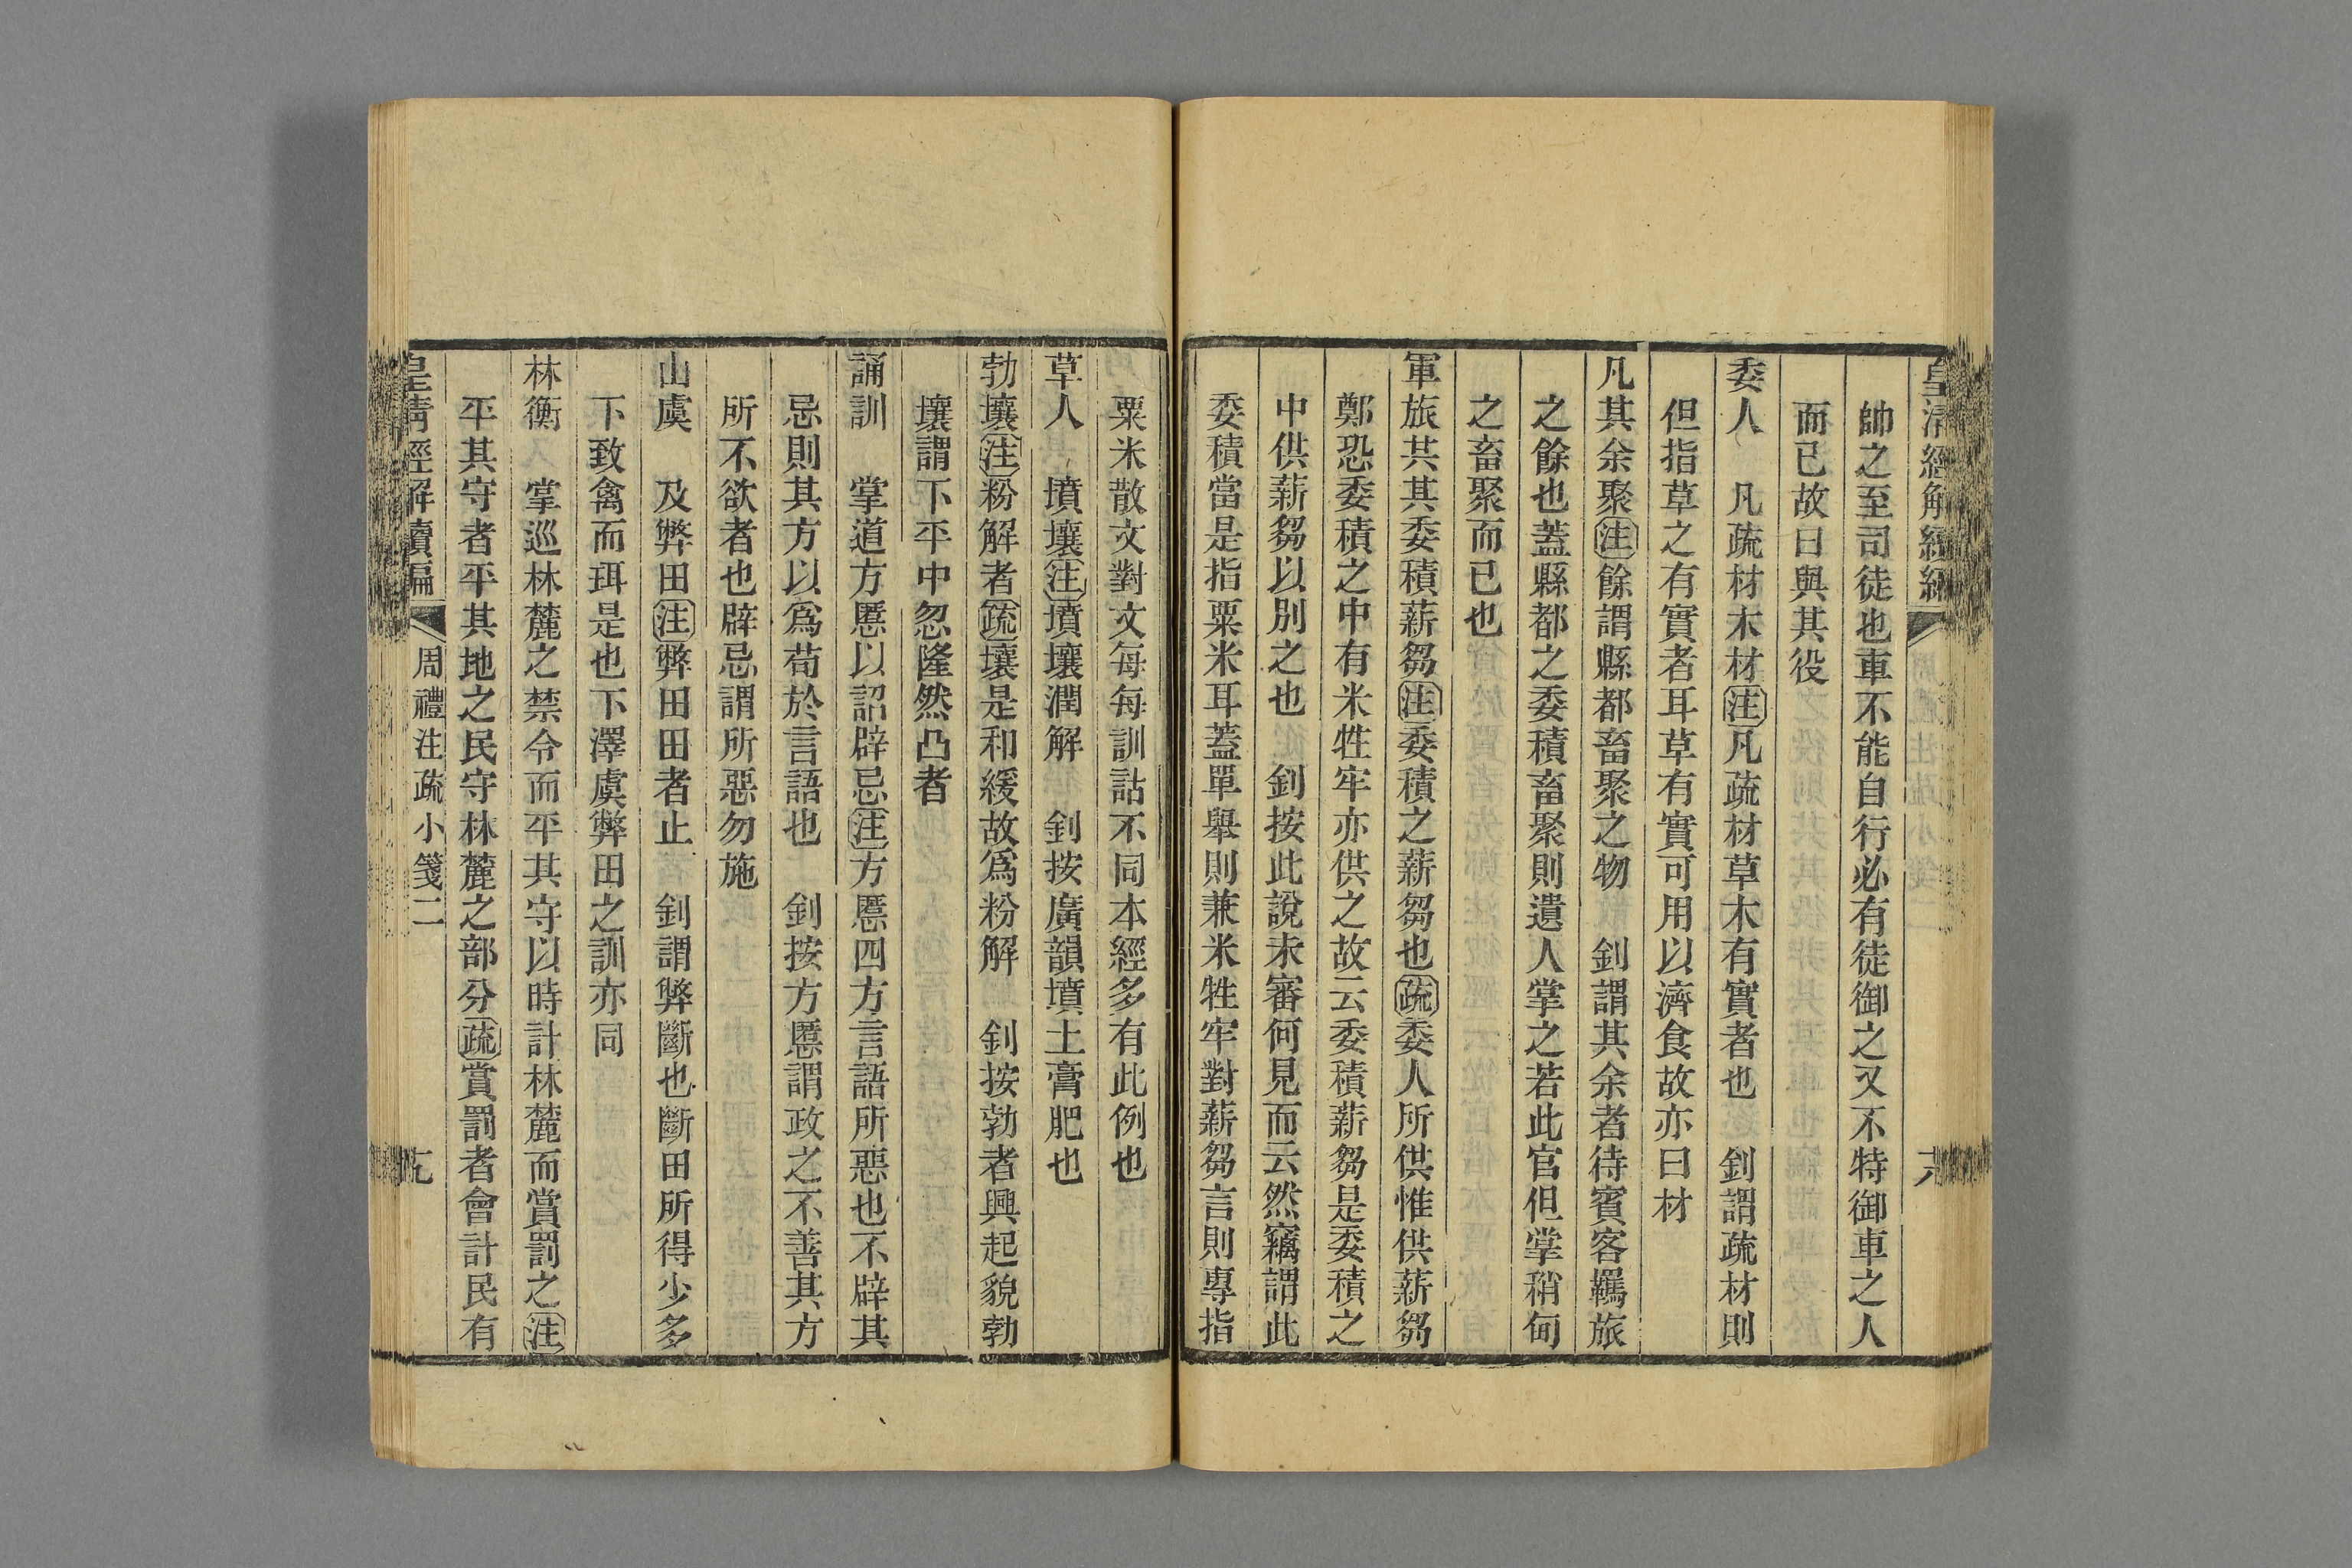 皇清經解續編
帥之至司徒也車不能自行必有徒御之又不特御車之人
而已故曰與其役
委人　凡疏材木材注凡疏材草木有實者也　釗謂疏材則
但指草之有實者耳草有實可用以濟食故亦曰材
凡其余聚注餘謂縣都畜聚之物　釗謂其余者待賓客羈旅
之餘也蓋縣都之委積畜聚則遺人掌之若此官但掌稍甸
之畜聚而已也
軍旅共其委積薪芻注委積之薪芻也疏委人所供惟供薪芻
鄭恐委積之中有米牲牢亦供之故云委積薪芻是委積之
中供薪芻以別之也　釗按此說未審何見而云然竊謂此
委積當是指粟米耳蓋單舉則兼米牲牢對薪芻言則專指
粟米散文對文每每訓詁不同本經多有此例也
草人　墳壤注墳壤潤解　釗按廣韻墳土膏肥也
勃壤注粉解者疏壤是和緩故為粉解　釗按勃者興起貌勃
壤謂下平中忽隆然凸者
誦訓　掌道方慝以詔辟忌注方慝四方言語所惡也不辟其
忌則其方以為苟於言語也　釗按方慝謂政之不善其方
所不欲者也辟忌謂所惡勿施
山虞　及弊田注弊田田者止　釗謂弊斷也斷田所得少多
下致禽而珥是也下澤虞弊田之訓亦同
林衡　掌巡林麓之禁令而平其守以時計林麓而賞罰之注
平其守者平其地之民守林麓之部分疏賞罰者會計民有
皇清經解續編　周禮注疏小箋二